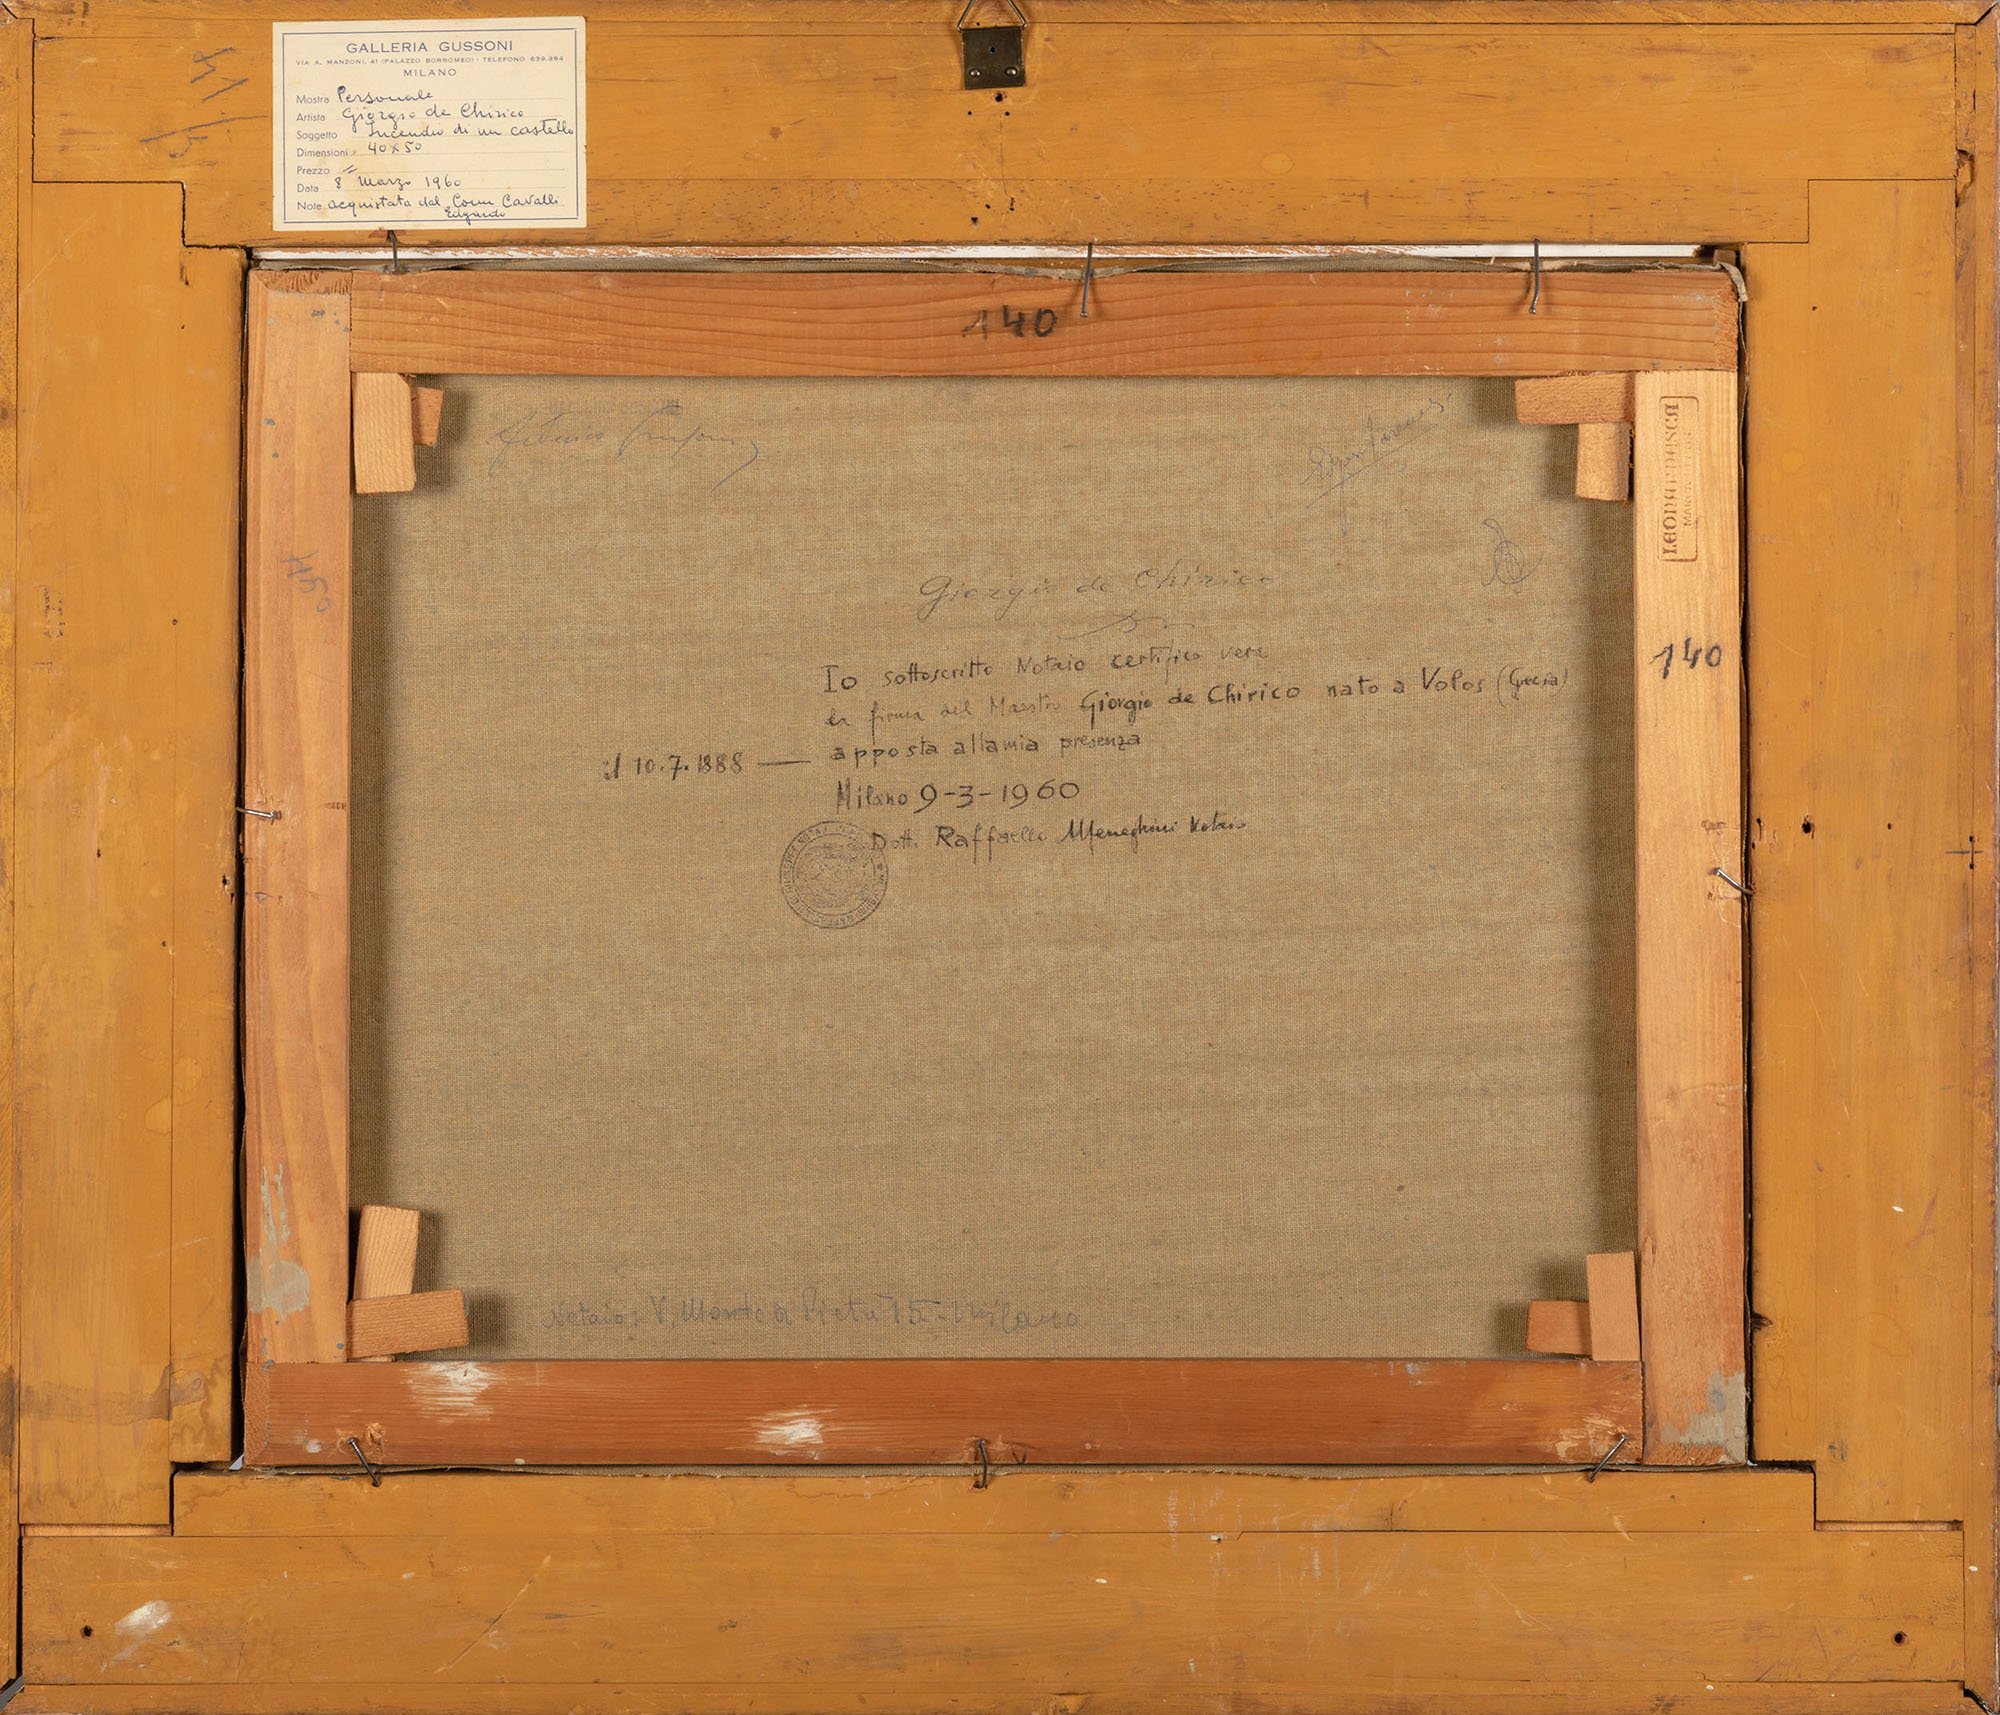 GALLERIA GUSSONI
VIA A. MANZONI, 41 (PALAZZO BORROMEO) - TELEFONO 639.984
MILANO
Mostra Personale
Artista Giorgio de Chirico
Soggetto Incendio di un castello
Dimensioni 40x50
Prezzo "
Data 8 Marzo 1960
Note acquistata dal Comm Cavalli
Edgardo
140
LEONARDESCA
MARCA
140
140
Giorgio de Chirico
Io sottoscritto Notaio certifico vera
la firma del Maestro Giorgio de Chirico nato a Volos (Grecia)
il 10.7.1888 — apposta alla mia presenza
Milano 9-3-1960
Dott. Raffaello Meneghini Notaio
Notaio: V. Monte a Pieta 15 - Milano